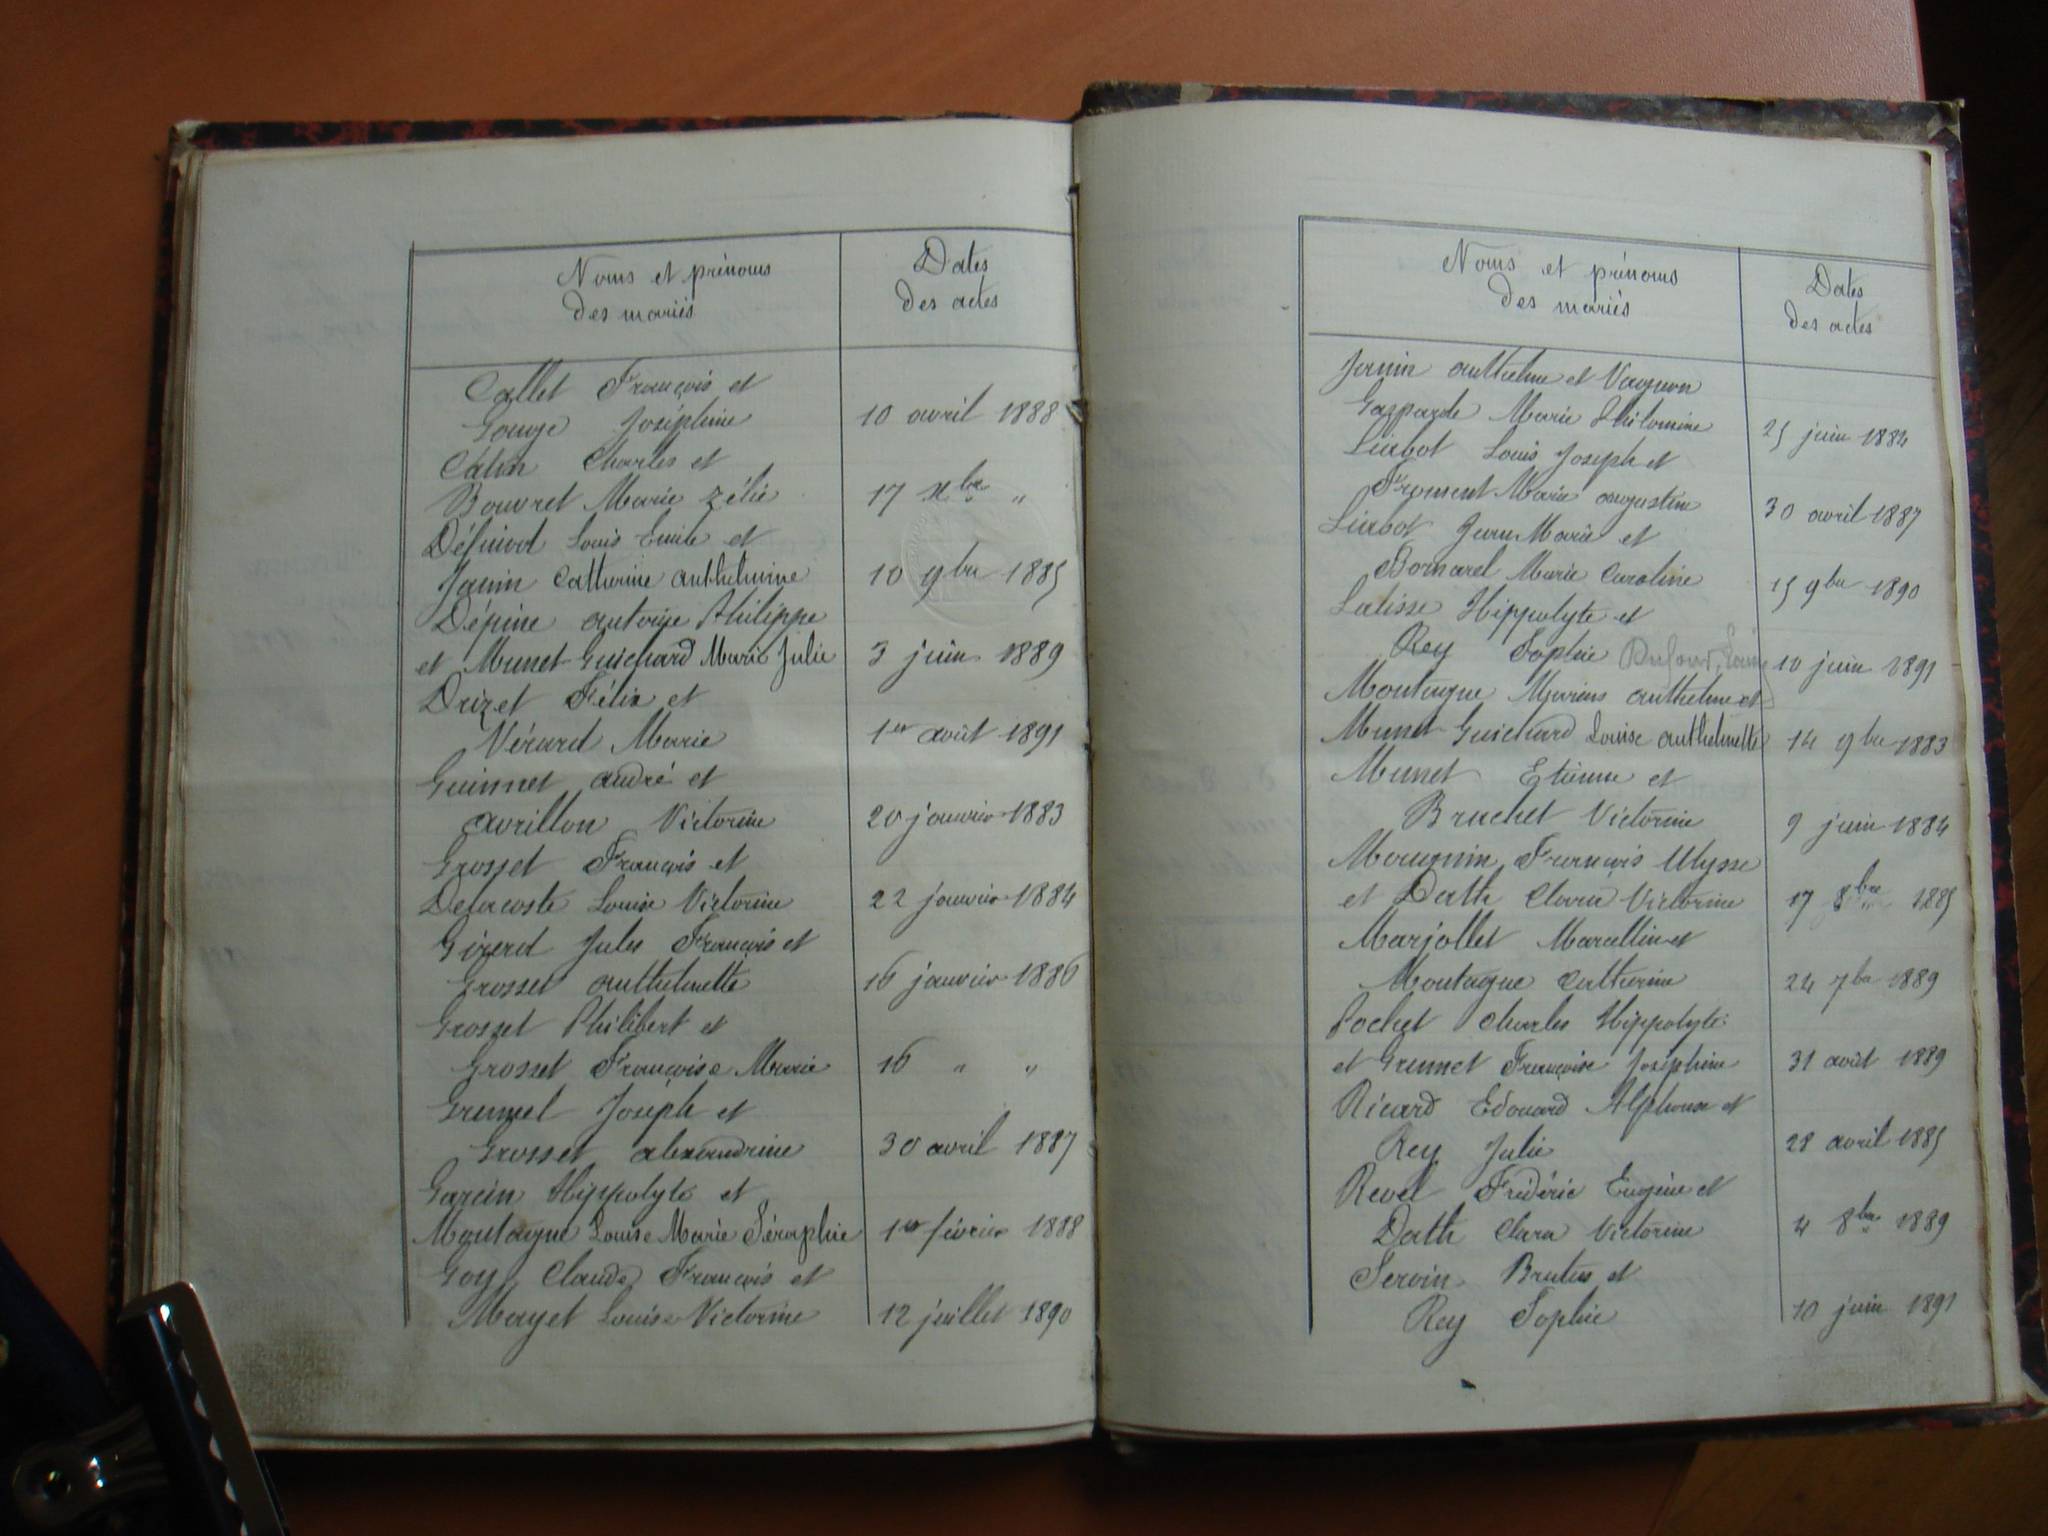 Noms et prénoms
des mariés
Dates
des actes
Callet François et
Gouge Joséphine 10 avril 1888
Catin Charles et
Bouvret Marie Zélie 17 Xbre "
Louis Emile et
Janin Catherine Anthelmine 10 9bre 1885
Dépine Antoine Philippe
et Munet-Guichard Marie Julie 3 juin 1889
Drizet Félix et
Vérard Marie 1er août 1891
Guinnet André et
Avrillon Victorine 20 janvier 1883
Grosset François et
Delacoste Louise Victorine 22 janvier 1884
Girerd Jules François et
Grosset Anthelmette 16 janvier 1886
Grosset Philibert et
Grosset Françoise Marie 16 " "
Grumel Joseph et
Grosset Alexandrine 30 avril 1887
Garcin Hippolyte et
Montagne Louise Marie Séraphie 1er février 1888
Goy Claude François et
Mayet Louise Victorine 12 juillet 1890
Noms et prénoms
des mariés
Dates
des actes
Janin Anthelme et Vagnon
Gasparde Marie Philomine 25 juin 1884
Louis Joseph et
Froment Marie Augustine 30 avril 1887
Jean Marie et
Bornarel Marie Caroline 15 9bre 1890
Hippolyte et
Rey Sophie Dufour, 10 juin 1891
Montagne Marius Anthelme et
Munet-Guichard Louise Anthelmette 14 9bre 1883
Munet Etienne et
Bruchet Victorine 9 juin 1884
Mougnin François Ulysse
et Dath Clara Victorine 17 8bre 1885
Marjollet Marcellin et
Montagne Catherine 24 7bre 1889
Pochet Charles Hippolyte
et Grumet Françoise Joséphine 31 août 1889
Ricard Edouard Alphonse et
Rey Julie 28 avril 1885
Revel Frédéric Eugène et
Dath Clara Victorine 4 8bre 1889
Servin Brutus et
Rey Sophie 10 juin 1891